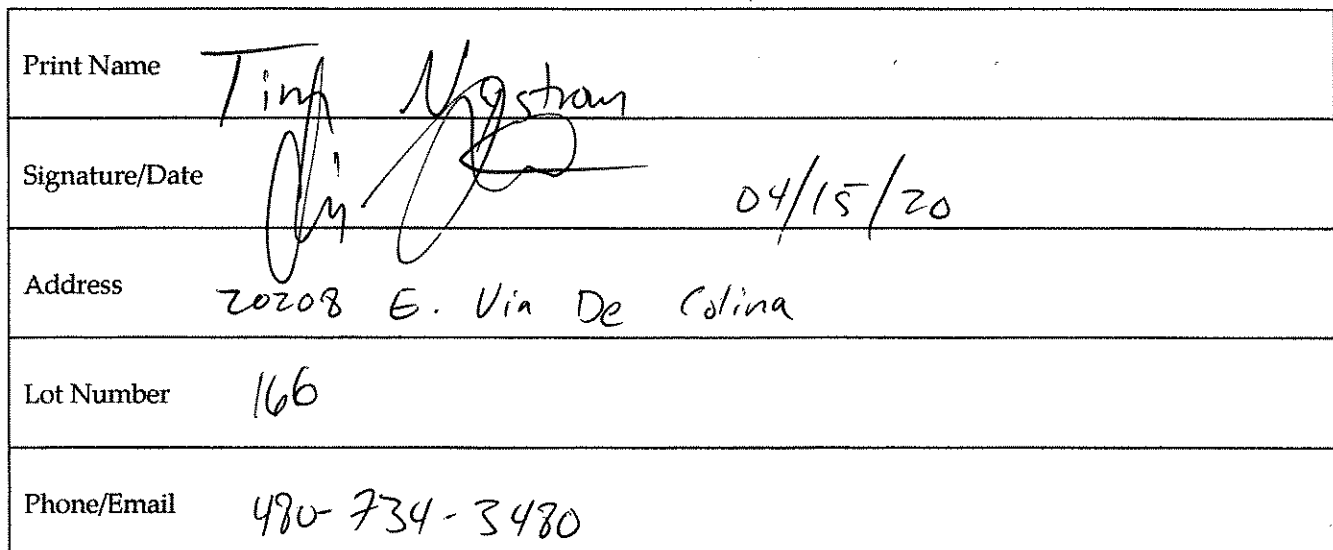 Print Name Tim Nystrom
Signature/Date 04/15/20
Address 20208 E. Via De Colina
Lot Number 166
Phone/Email 480-734-3480